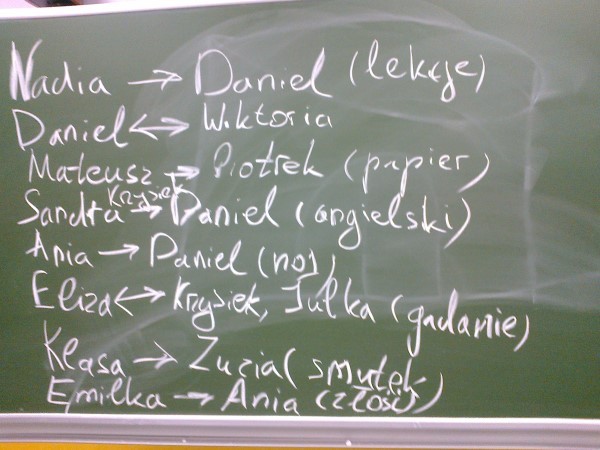 Nadia → Daniel (lekcje)
Daniel ↔ Wiktoria
Mateusz → Piotrek (papier)
Krzysiek
Sandra → Daniel (angielski)
Ania → Daniel (nos)
Eliza ↔ Krzysiek, Julka (gadanie)
Klasa → Zuzia (smutek
Emilka → Ania (złość)